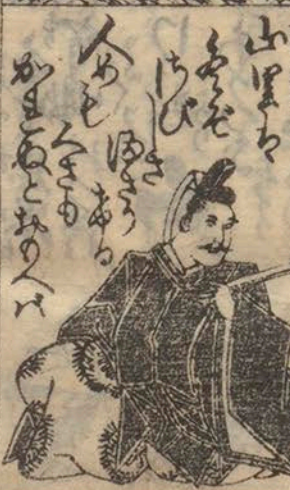 山里は
冬ぞ
さびしさ
まさり
ける
人めも
くさも
かれぬとおもへは